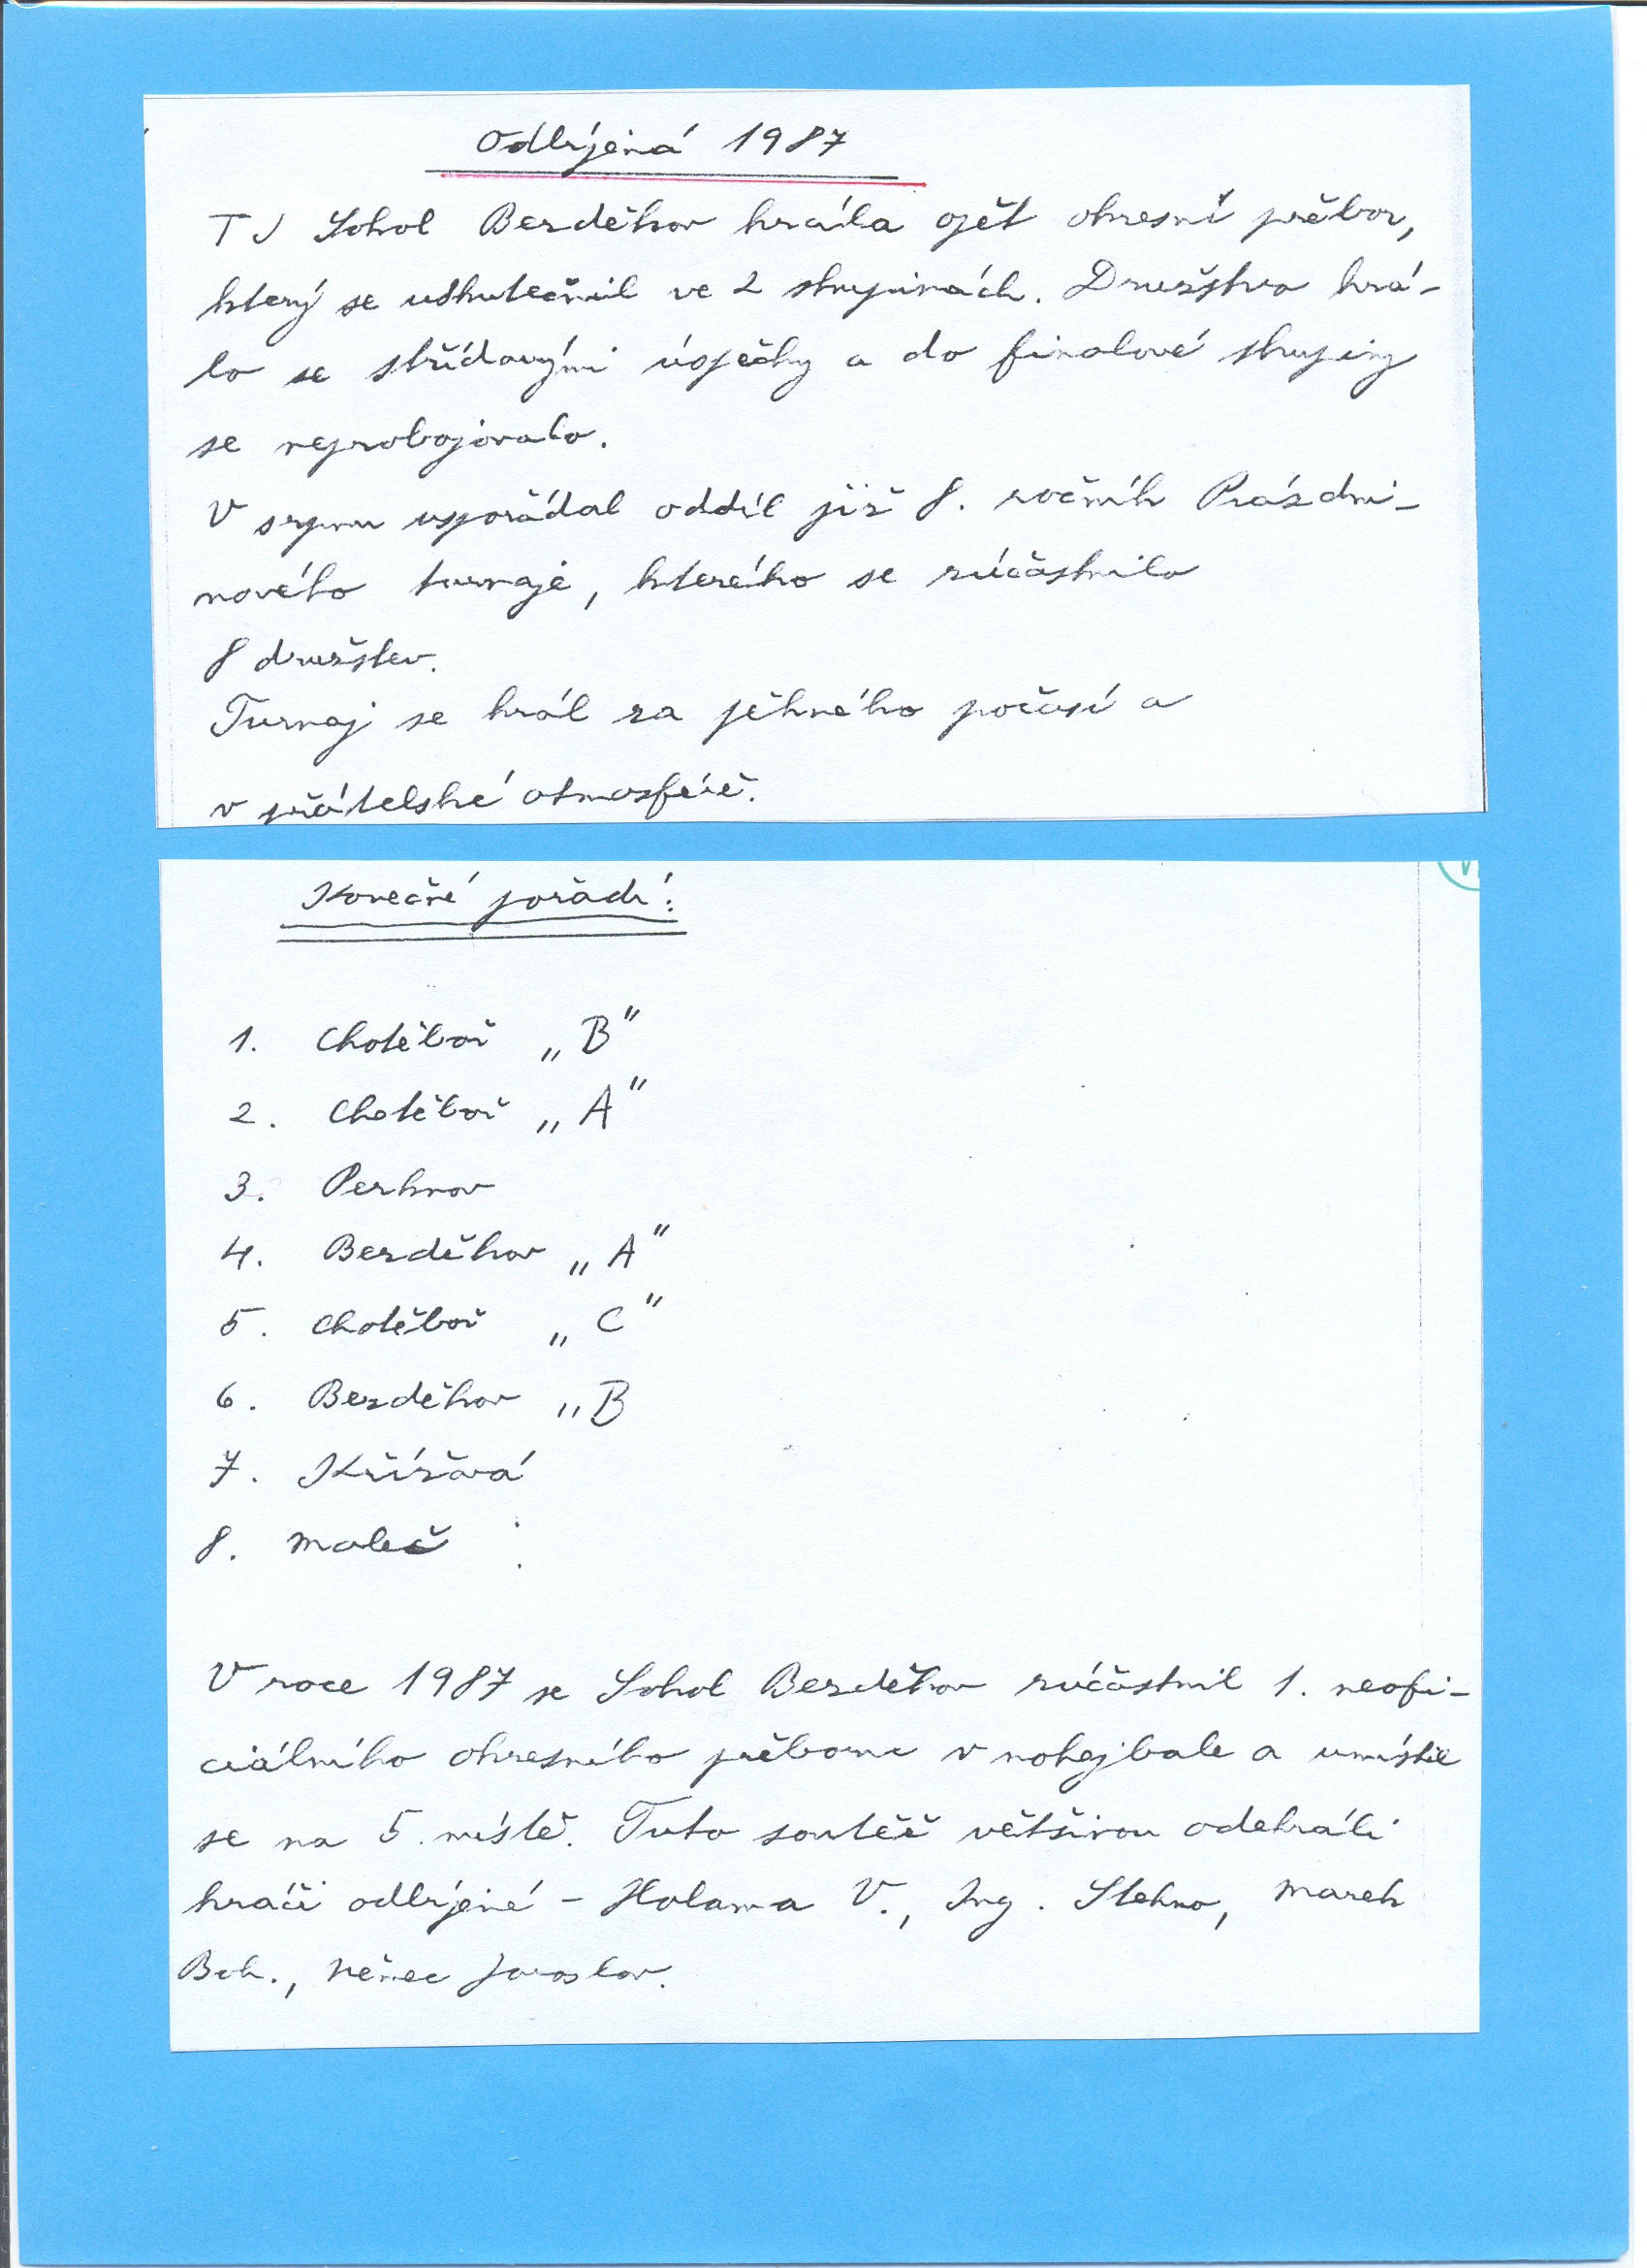 Odbíjená 1987
TJ Sokol Bezděkov hrála opět okresní přebor,
který se uskutečnil ve 2 skupinách. Družstvo hrá-
lo se střídavými úspěchy a do finalové skupiny
se neprobojovalo.
V srpnu uspořádal oddíl již 8. ročník Prázdni-
nového turnaje, kterého se zúčastnilo
8 družstev.
Turnaj se hrál za pěkného počasí a
v přátelské atmosféře.
Konečné pořadí:
1. Chotěboř „B"
2. Chotěboř „A"
3. Perknov
4. Bezděkov „A"
5. Chotěboř „C"
6. Bezděkov „B
7. Křížová
8. Maleč
V roce 1987 se Sokol Bezděkov zúčastnil 1. neofi-
ciálního okresního přeboru v nohejbale a umístil
se na 5. místě. Tuto soutěž většinou odehráli
hráči odbíjené - Holama V., Ing. Stehno, Marek
Boh., Němec Jaroslav.